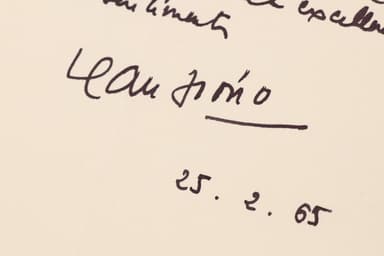 excellen
sentiments
Jean Giono
25. 2. 65